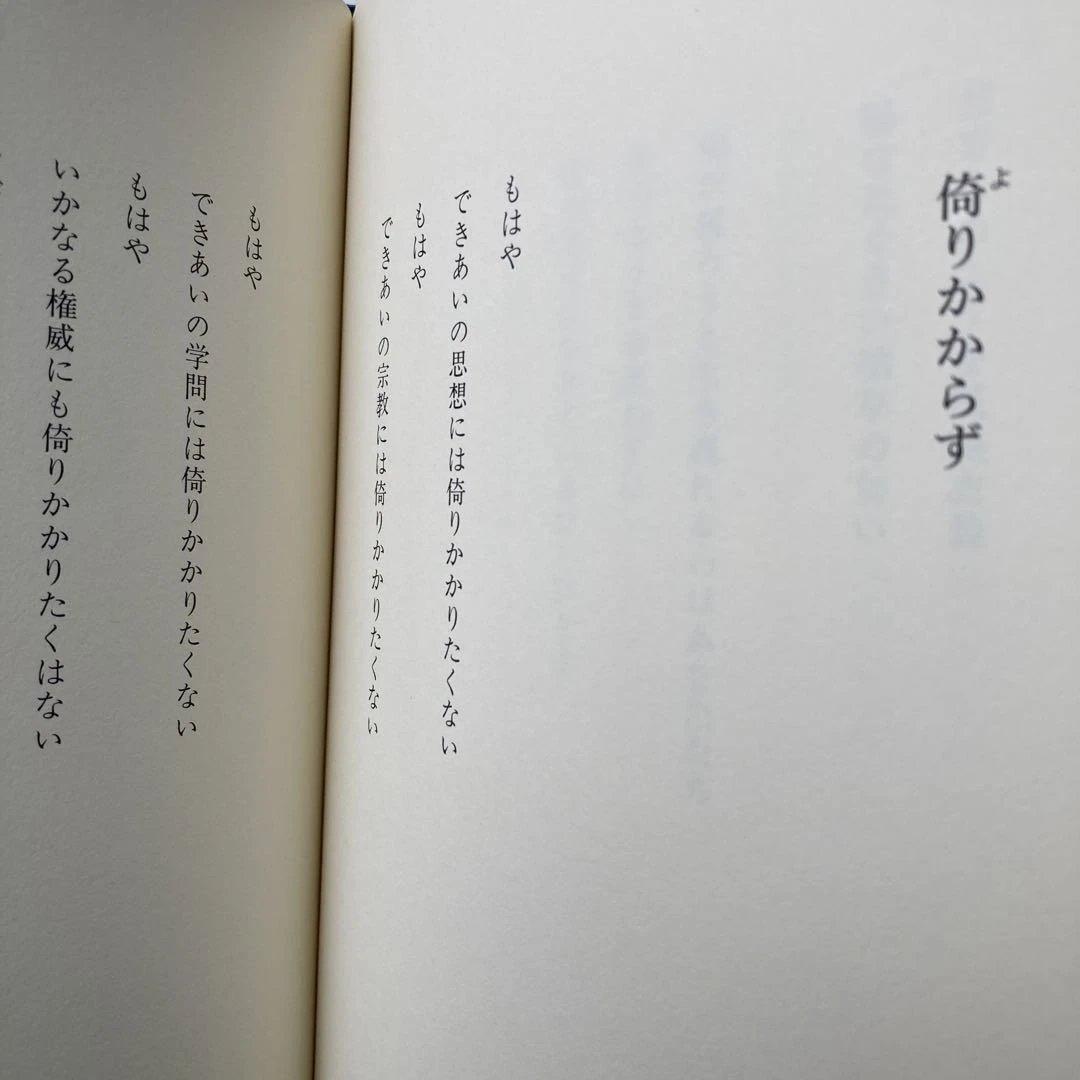 倚りかからず
よ
もはや
できあいの思想には倚りかかりたくない
もはや
できあいの宗教には倚りかかりたくない
もはや
できあいの学問には倚りかかりたくない
もはや
いかなる権威にも倚りかかりたくはない